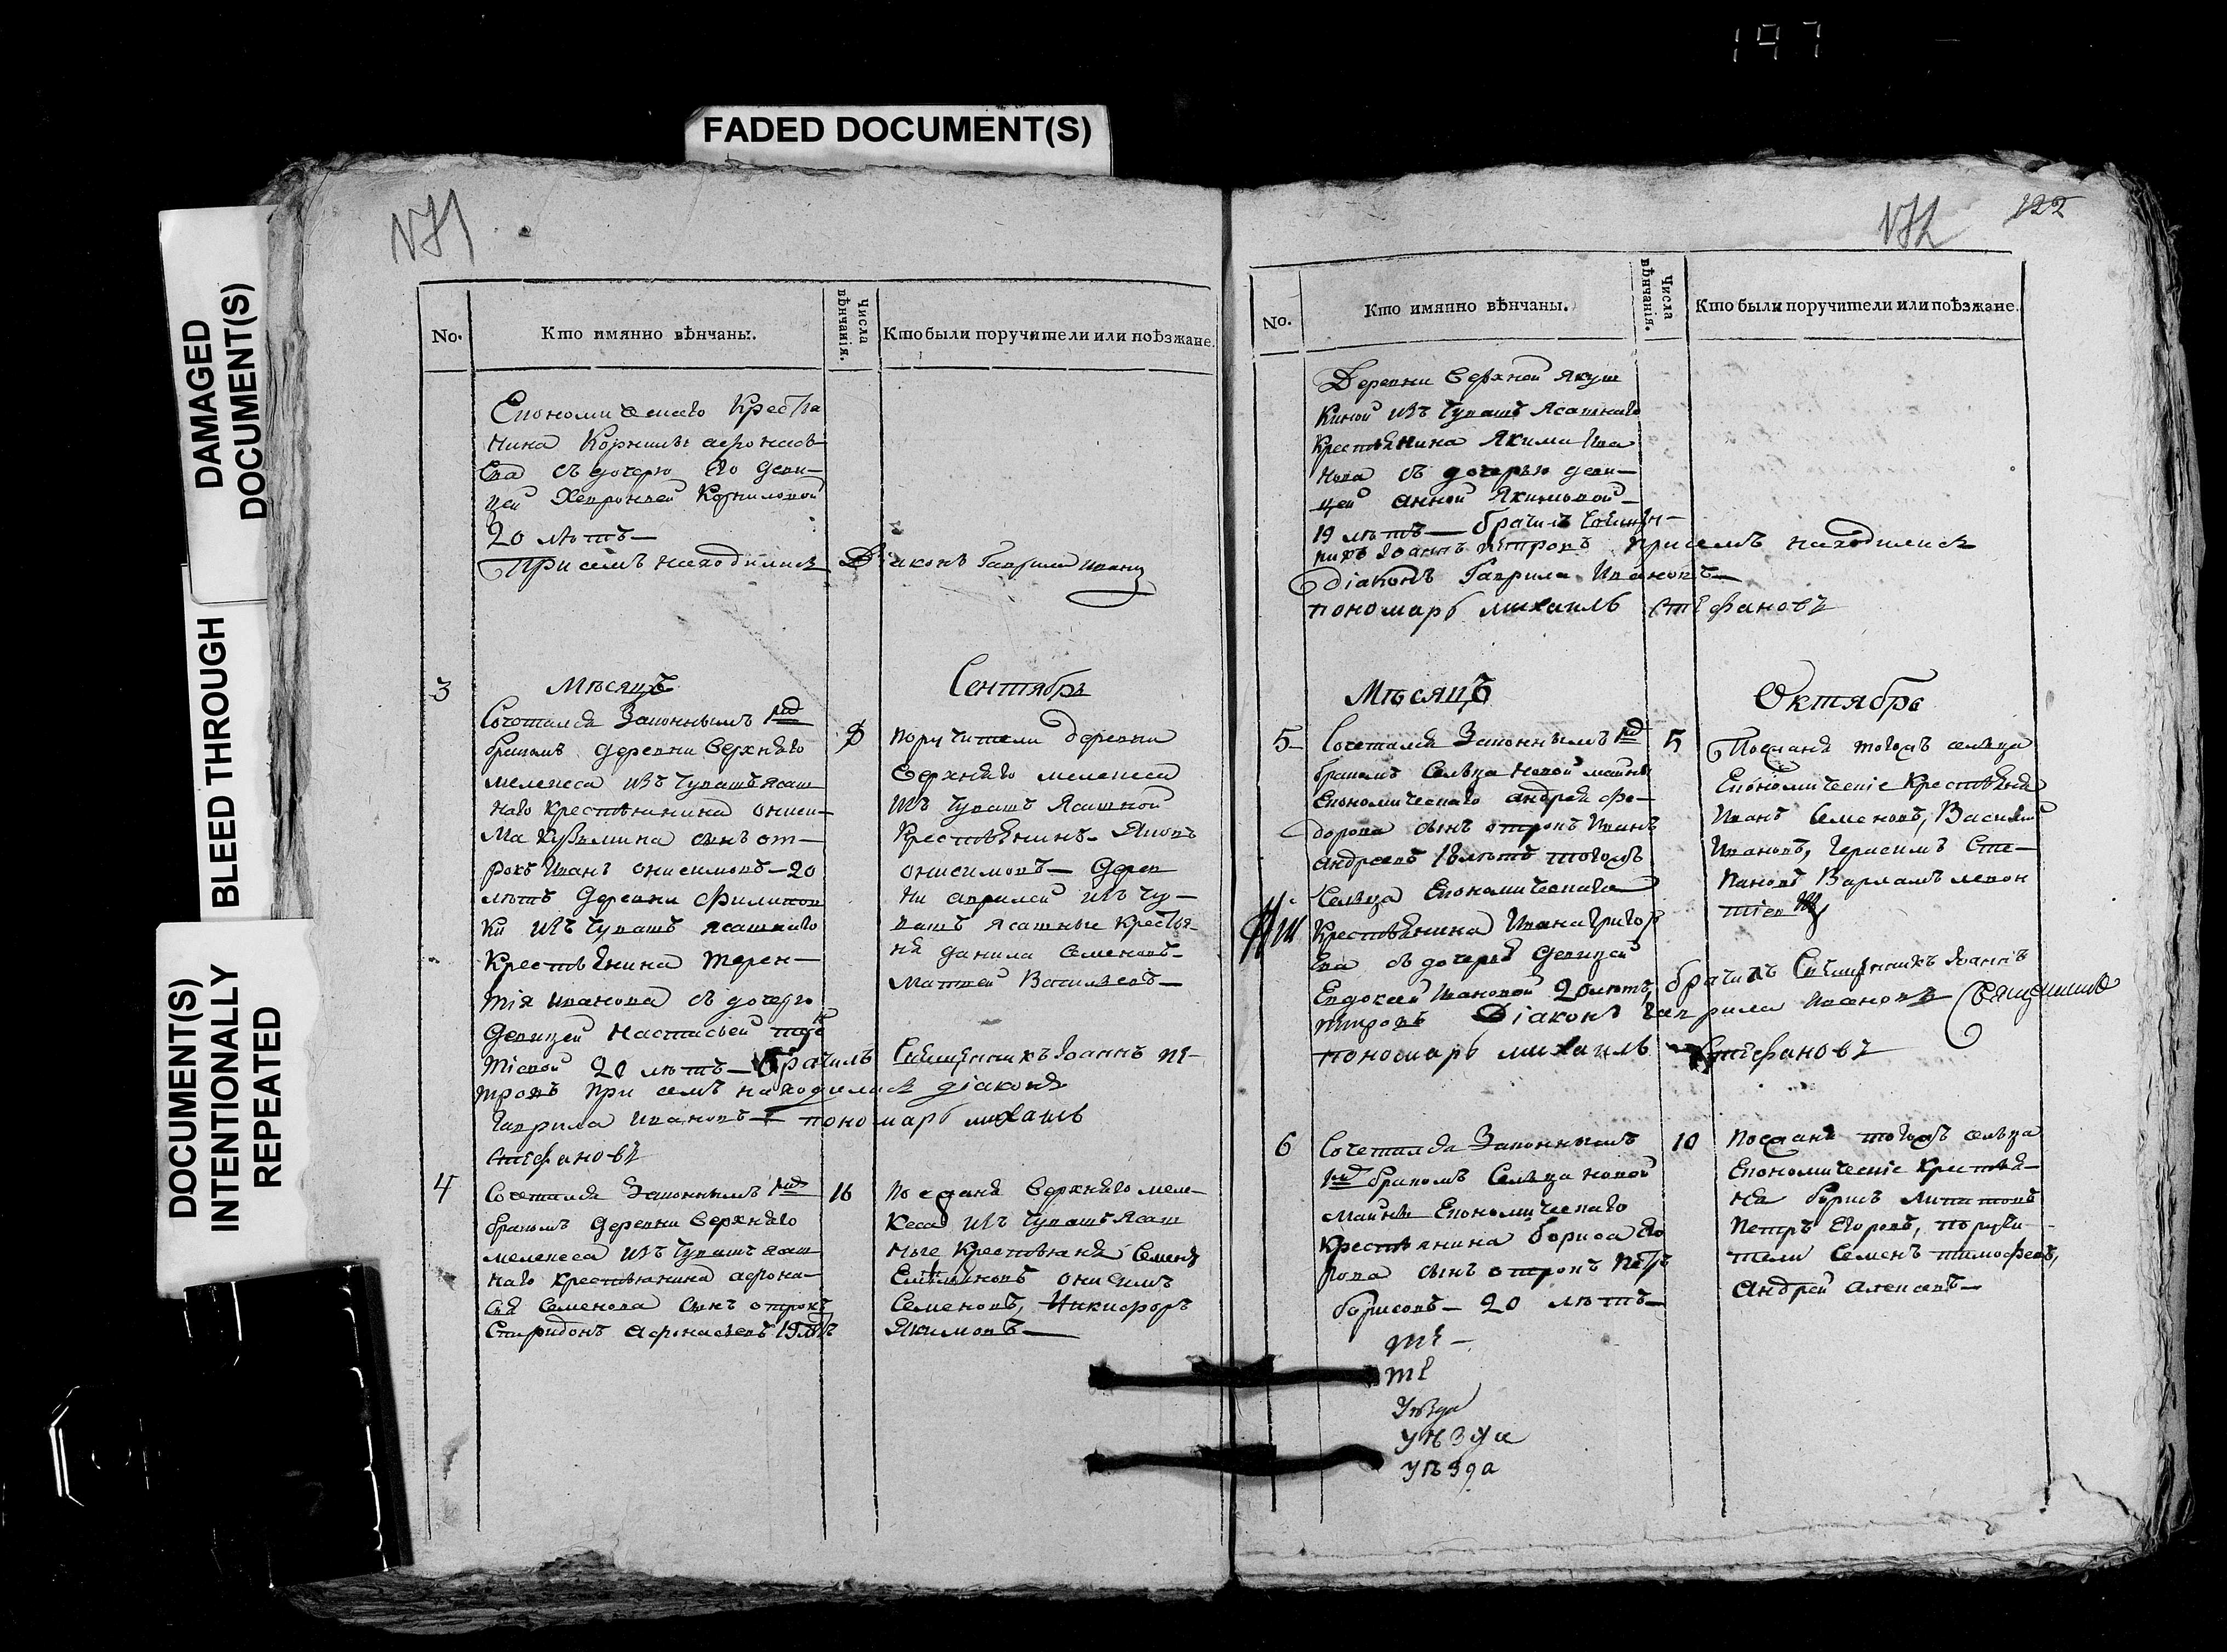 197
FADED DOCUMENT(S)
DAMAGED
DOCUMENT(S)
BLEED THROUGH
DOCUMENT(S)
INTENTIONALLY
REPEATED
No.
Кто имянно вѣнчаны.
Числа
вѣнчанія.
Кто были поручители или поѣзжане.
Економическаго Крестья
нина Корнила афонась
ева съ дочерю его деви-
цей Хевроньей Корниловой
20 лѣтъ—
При семъ находились Діаконъ Гаврила Ивановъ
3
Мѣсяцъ
Сентябрь
Сочетался Законнымъ 1мъ
бракомъ деревни Верхняго
мелекеса изъ Чувашъ ясаш
наго крестьянинаОниси-
ма Кузьмина сынъ от-
рокъ Иванъ Онисимовъ—20
лѣтъ деревни Филипов
ки изъ Чувашъ ясашнаго
Крестьянина Терен-
тія Иванова съ дочерю
девицей Настасьей Терен
тіевой 20 лѣтъ— брачилъ Священникъ Іоаннъ Пе-
тровъ при семъ находились діаконъ
Гаврила Ивановъ— пономарь михаилъ
Стефановъ
поручители деревни
Верхняго мелекеса
изъ Чувашъ Ясашной
Крестьянинъ Яковъ
Онисимовъ— дерев
ни аврилей изъ Чу-
вашъ ясашные крестья-
не данила Семеновъ—
матвей Васильевъ—
4
Сочетался Законнымъ 1мъ
бракомъ деревни Верхняго
мелекеса изъ Чувашъ ясаш
наго крестьянина афона-
сья Семенова сынъ отрокъ
Спиридонъ афонасьевъ 19 лѣтъ
16
Поезжаня Верхняго меле-
кеса изъ Чувашъ Ясаш
ные Крестьяня Семенъ
Емельяновъ Онисимъ
Семеновъ, Никифоръ
Якимовъ—
122
No.
Кто имянно вѣнчаны.
Числа
вѣнчанія.
Кто были поручители или поѣзжане.
Деревни Верхней Якуш
киной изъ Чувашъ Ясашнаго
Крестьянина Якима Ива
нова съ дочерью деви-
цей анной Якимовой—
19 лѣтъ— брачилъ Священ-
никъ Іоаннъ Петровъ При семъ находились
діаконъ Гаврила Ивановъ—
пономарь михаилъ Стефановъ
Мѣсяцъ
Октябрь
5
Сочетался Законнымъ 1мъ
бракомъ Сельца новой майны
Економическаго андрея Фе-
дорова сынъ отрокъ Иванъ
андреевъ 18 лѣтъ тогожъ
Сельца Економическаго
Крестьянина Ивана Григорь
ева съ дочерью девицей
Евдокией Ивановой 20 лѣтъ, брачилъ Священникъ Іоаннъ
Петровъ Діаконъ Гаврила Ивановъ
пономарь михаилъ Стефановъ
5
Поезжаня тогожъ сельца
Економическіе Крестьяня
Иванъ Семеновъ, Василей
Ивановъ, Герасимъ Сте-
пановъ Варламъ левон
тіев
6
Сочетался Законнымъ
1мъ бракомъ Сельца новой
майны Економическаго
крестьянина бориса Его
рова сынъ отрокъ Петръ
борисовъ— 20 лѣтъ—
10
Поезжаня тогожъ сельца
Економическіе Крестья-
ня борисъ
Петръ Егоровъ, поручи-
тели Семенъ тимофеевъ,
андрей алексеевъ—
те—
те
уѣзда
уѣзда
уѣзда